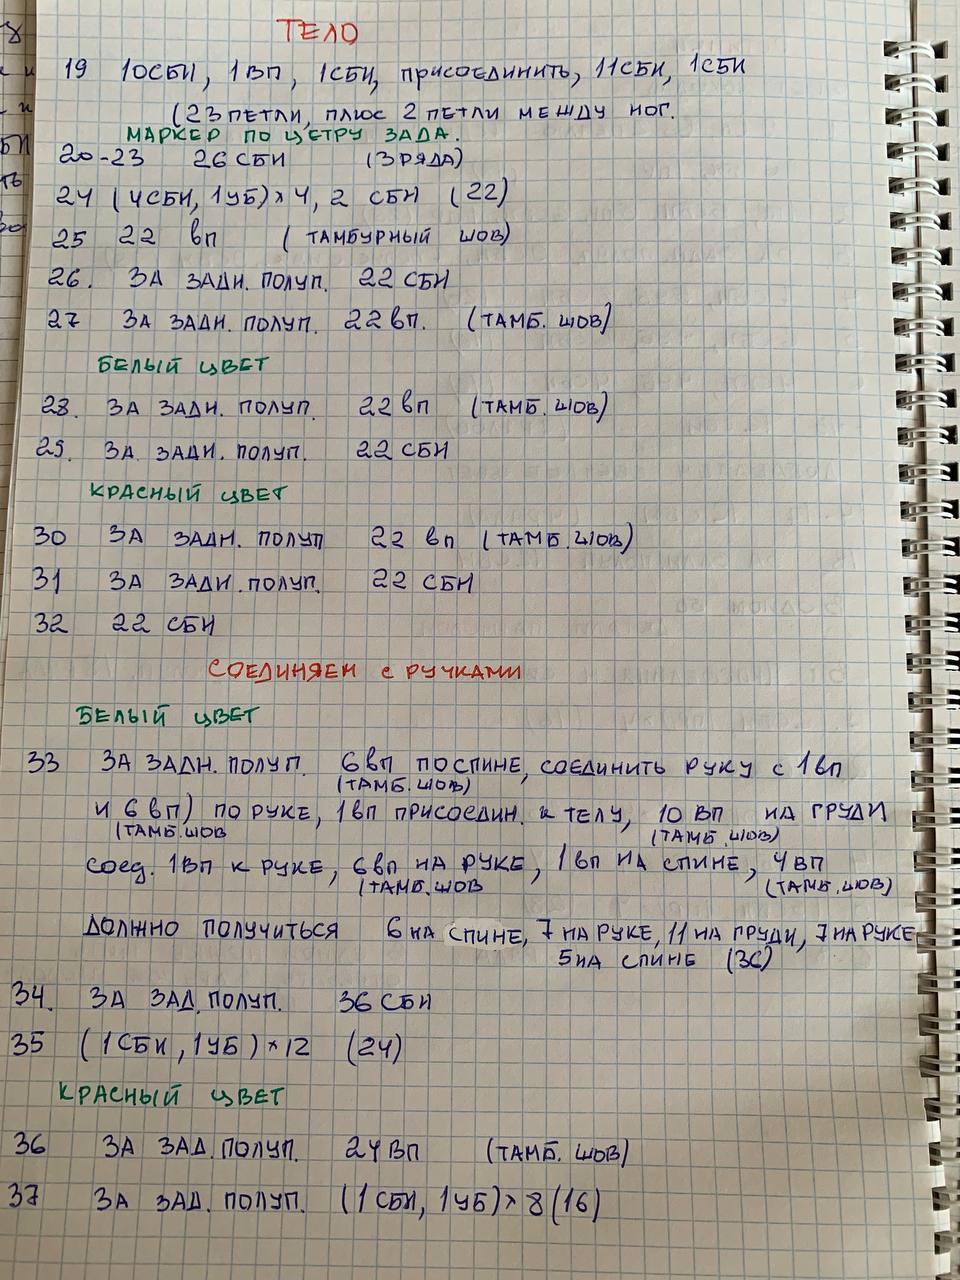 ТЕЛО
19 10СБН, 1ВП, 1СБН, присоединить, 11СБН, 1СБН
(23 ПЕТЛИ, ПЛЮС 2 ПЕТЛИ МЕЖДУ НОГ.
МАРКЕР ПО ЦЕТРУ ЗАДА.
20-23 26 СБН (3 РЯДА)
24 (4СБН, 1УБ) × 4, 2 СБН (22)
25 22 ВП (ТАМБУРНЫЙ ШОВ)
26. ЗА ЗАДН. ПОЛУП. 22 СБН
27 ЗА ЗАДН. ПОЛУП. 22 ВП. (ТАМБ. ШОВ)
БЕЛЫЙ ЦВЕТ
28. ЗА ЗАДН. ПОЛУП. 22 ВП (ТАМБ. ШОВ)
29. ЗА ЗАДН. ПОЛУП. 22 СБН
КРАСНЫЙ ЦВЕТ
30 ЗА ЗАДН. ПОЛУП 22 ВП (ТАМБ. ШОВ)
31 ЗА ЗАДН. ПОЛУП. 22 СБН
32 22 СБН
СОЕДИНЯЕМ С РУЧКАМИ
БЕЛЫЙ ЦВЕТ
33 ЗА ЗАДН. ПОЛУП. 6 ВП ПО СПИНЕ, СОЕДИНИТЬ РУКУ С 1 ВП
(ТАМБ. ШОВ)
И 6 ВП) ПО РУКЕ, 1 ВП ПРИСОЕДИН. К ТЕЛУ, 10 ВП НА ГРУДИ
(ТАМБ. ШОВ (ТАМБ. ШОВ)
СОЕД. 1 ВП К РУКЕ, 6 ВП НА РУКЕ, 1 ВП НА СПИНЕ, 4 ВП
(ТАМБ. ШОВ (ТАМБ. ШОВ)
ДОЛЖНО ПОЛУЧИТЬСЯ 6 НА СПИНЕ, 7 НА РУКЕ, 11 НА ГРУДИ, 7 НА РУКЕ
5 НА СПИНЕ (36)
34. ЗА ЗАД. ПОЛУП. 36 СБН
35 (1 СБН, 1УБ) × 12 (24)
КРАСНЫЙ ЦВЕТ
36 ЗА ЗАД. ПОЛУП. 24 ВП (ТАМБ. ШОВ)
37 ЗА ЗАД. ПОЛУП. (1 СБН, 1УБ) × 8 (16)